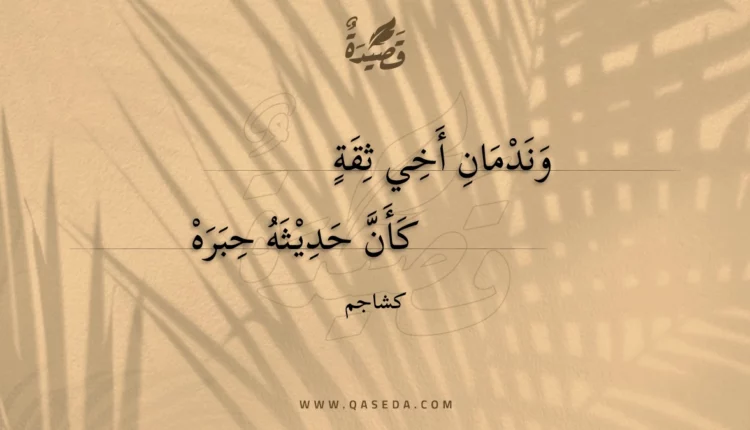 قَصِيْدَةٌ
وَنَدْمَانِ أَخِي ثِقَةٍ
كَأَنَّ حَدِيْثَهُ حِبَرَهْ
كشاجم
WWW.QASEDA.COM